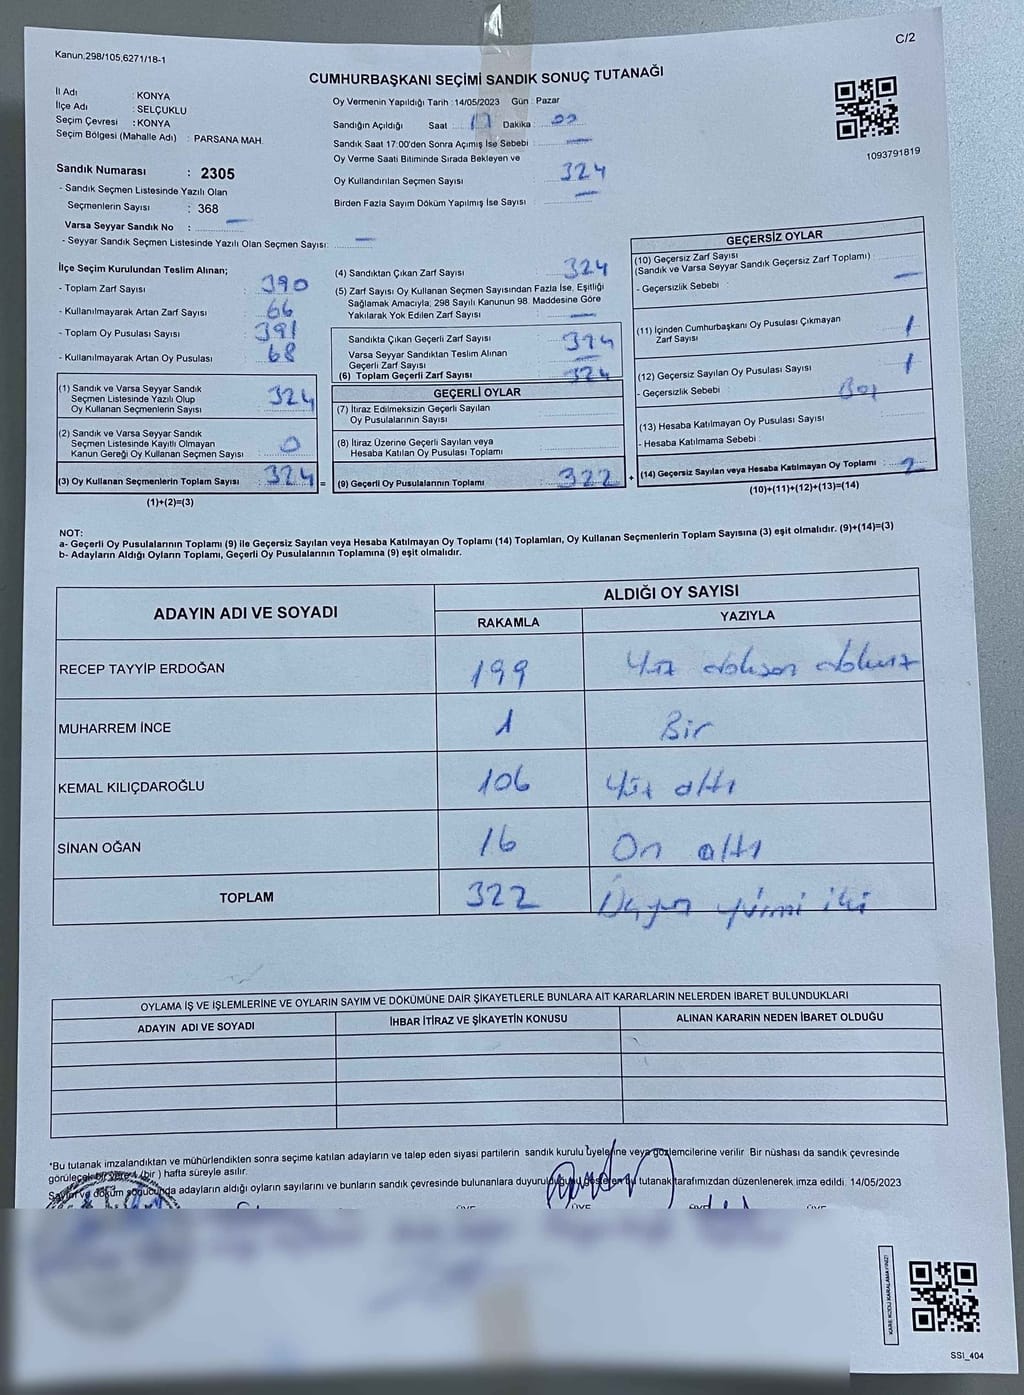 Kanun;298/105,6271/18-1
C/2
CUMHURBAŞKANI SEÇİMİ SANDIK SONUÇ TUTANAĞI
İl Adı : KONYA
İlçe Adı : SELÇUKLU
Seçim Çevresi : KONYA
Seçim Bölgesi (Mahalle Adı) : PARSANA MAH.
Sandık Numarası : 2305
- Sandık Seçmen Listesinde Yazılı Olan
Seçmenlerin Sayısı : 368
Varsa Seyyar Sandık No : —
- Seyyar Sandık Seçmen Listesinde Yazılı Olan Seçmen Sayısı: —
Oy Vermenin Yapıldığı Tarih : 14/05/2023 Gün : Pazar
Sandığın Açıldığı Saat 17 Dakika : 00
Sandık Saat 17:00'den Sonra Açımış İse Sebebi : —
Oy Verme Saati Bitiminde Sırada Bekleyen ve
Oy Kullandırılan Seçmen Sayısı 324
Birden Fazla Sayım Döküm Yapılmış İse Sayısı : —
1093791819
İlçe Seçim Kurulundan Teslim Alınan;
- Toplam Zarf Sayısı : 390
- Kullanılmayarak Artan Zarf Sayısı : 66
- Toplam Oy Pusulası Sayısı : 391
- Kullanılmayarak Artan Oy Pusulası : 68
(1) Sandık ve Varsa Seyyar Sandık
Seçmen Listesinde Yazılı Olup
Oy Kullanan Seçmenlerin Sayısı : 324
(2) Sandık ve Varsa Seyyar Sandık
Seçmen Listesinde Kayıtlı Olmayan
Kanun Gereği Oy Kullanan Seçmen Sayısı : 0
(3) Oy Kullanan Seçmenlerin Toplam Sayısı : 324 =
(1)+(2)=(3)
(4) Sandıktan Çıkan Zarf Sayısı : 324
(5) Zarf Sayısı Oy Kullanan Seçmen Sayısından Fazla İse, Eşitliği
Sağlamak Amacıyla; 298 Sayılı Kanunun 98. Maddesine Göre
Yakılarak Yok Edilen Zarf Sayısı : —
Sandıkta Çıkan Geçerli Zarf Sayısı : 324
Varsa Seyyar Sandıktan Teslim Alınan
Geçerli Zarf Sayısı : —
(6) Toplam Geçerli Zarf Sayısı : 324
GEÇERLİ OYLAR
(7) İtiraz Edilmeksizin Geçerli Sayılan
Oy Pusulalarının Sayısı
(8) İtiraz Üzerine Geçerli Sayılan veya
Hesaba Katılan Oy Pusulası Toplamı
(9) Geçerli Oy Pusulalarının Toplamı : 322 +
GEÇERSİZ OYLAR
(10) Geçersiz Zarf Sayısı
(Sandık ve Varsa Seyyar Sandık Geçersiz Zarf Toplamı) : —
- Geçersizlik Sebebi :
(11) İçinden Cumhurbaşkanı Oy Pusulası Çıkmayan
Zarf Sayısı : 1
(12) Geçersiz Sayılan Oy Pusulası Sayısı : 1
- Geçersizlik Sebebi : Boş
(13) Hesaba Katılmayan Oy Pusulası Sayısı :
- Hesaba Katılmama Sebebi :
(14) Geçersiz Sayılan veya Hesaba Katılmayan Oy Toplamı : 2
(10)+(11)+(12)+(13)=(14)
NOT:
a- Geçerli Oy Pusulalarının Toplamı (9) ile Geçersiz Sayılan veya Hesaba Katılmayan Oy Toplamı (14) Toplamları, Oy Kullanan Seçmenlerin Toplam Sayısına (3) eşit olmalıdır. (9)+(14)=(3)
b- Adayların Aldığı Oyların Toplamı, Geçerli Oy Pusulalarının Toplamına (9) eşit olmalıdır.
ADAYIN ADI VE SOYADI
ALDIĞI OY SAYISI
RAKAMLA YAZIYLA
RECEP TAYYİP ERDOĞAN 199 Yüz doksan dokuz
MUHARREM İNCE 1 Bir
KEMAL KILIÇDAROĞLU 106 Yüz altı
SİNAN OĞAN 16 On altı
TOPLAM 322 Üçyüz yirmi iki
OYLAMA İŞ VE İŞLEMLERİNE VE OYLARIN SAYIM VE DÖKÜMÜNE DAİR ŞİKAYETLERLE BUNLARA AİT KARARLARIN NELERDEN İBARET BULUNDUKLARI
ADAYIN ADI VE SOYADI İHBAR İTİRAZ VE ŞİKAYETİN KONUSU ALINAN KARARIN NEDEN İBARET OLDUĞU
*Bu tutanak imzalandıktan ve mühürlendikten sonra seçime katılan adayların ve talep eden siyasi partilerin sandık kurulu üyelerine veya gözlemcilerine verilir. Bir nüshası da sandık çevresinde
görülecek bir yere 1 (bir ) hafta süreyle asılır.
Sayım ve döküm sonucunda adayların aldığı oyların sayılarını ve bunların sandık çevresinde bulunanlara duyurulduğunu gösteren bu tutanak tarafımızdan düzenlenerek imza edildi. 14/05/2023
ÜYE ÜYE ÜYE
KARE KODU KARALAMAYINIZ!
SS1_404